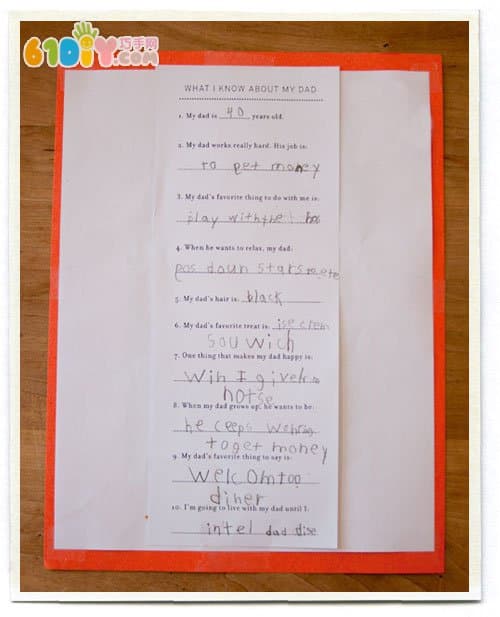 61DIY巧手网
.com
WHAT I KNOW ABOUT MY DAD
1. My dad is 40 years old.
2. My dad works really hard. His job is:
to get money
3. My dad's favorite thing to do with me is:
play with the
4. When he wants to relax, my dad:
gos doun stars to
5. My dad's hair is: black
6. My dad's favorite treat is: ise crem
souwich
7. One thing that makes my dad happy is:
Win I give
hotse
8. When my dad grows up, he wants to be:
he ceeps
to get money
9. My dad's favorite thing to say is:
Welcom too
diner
10. I'm going to live with my dad until I:
intel dad dise